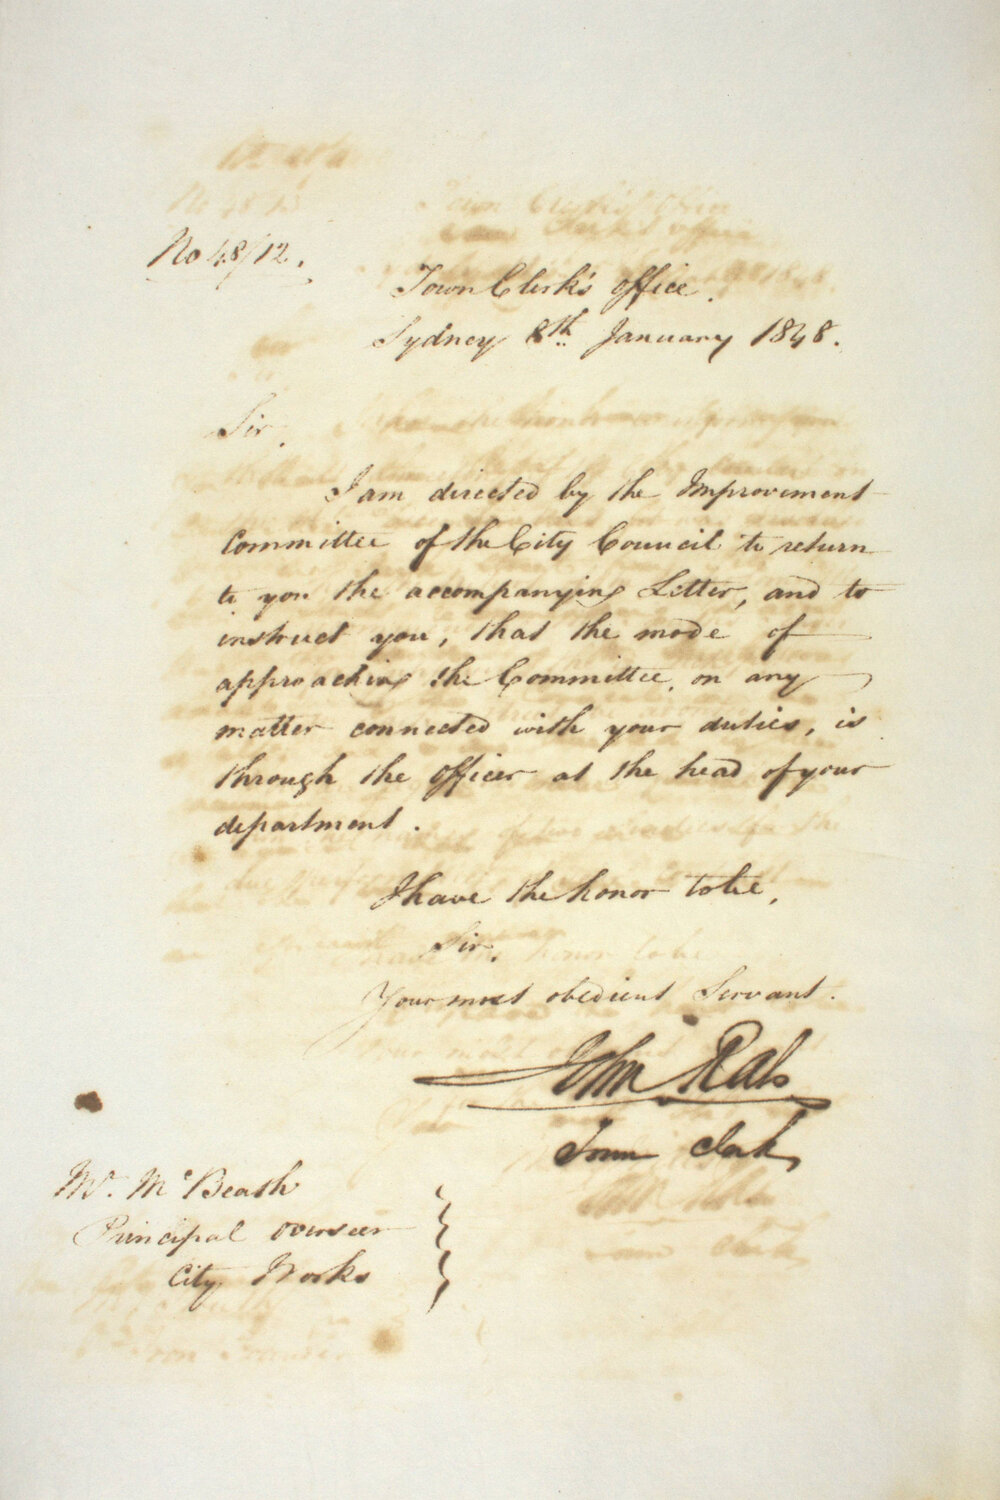 No 48/12.
Town Clerk's office.
Sydney 8th January 1848.
Sir,
I am directed by the Improvement
Committee of the City Council to return
to you the accompanying Letter, and to
instruct you, that the mode of
approaching the Committee, on any
matter connected with your duties, is
through the officer at the head of your
department.
I have the honor to be,
Sir,
Your most obedient Servant.
John Rae
Town Clerk
Mr. McBeath
Principal overseer
City Works